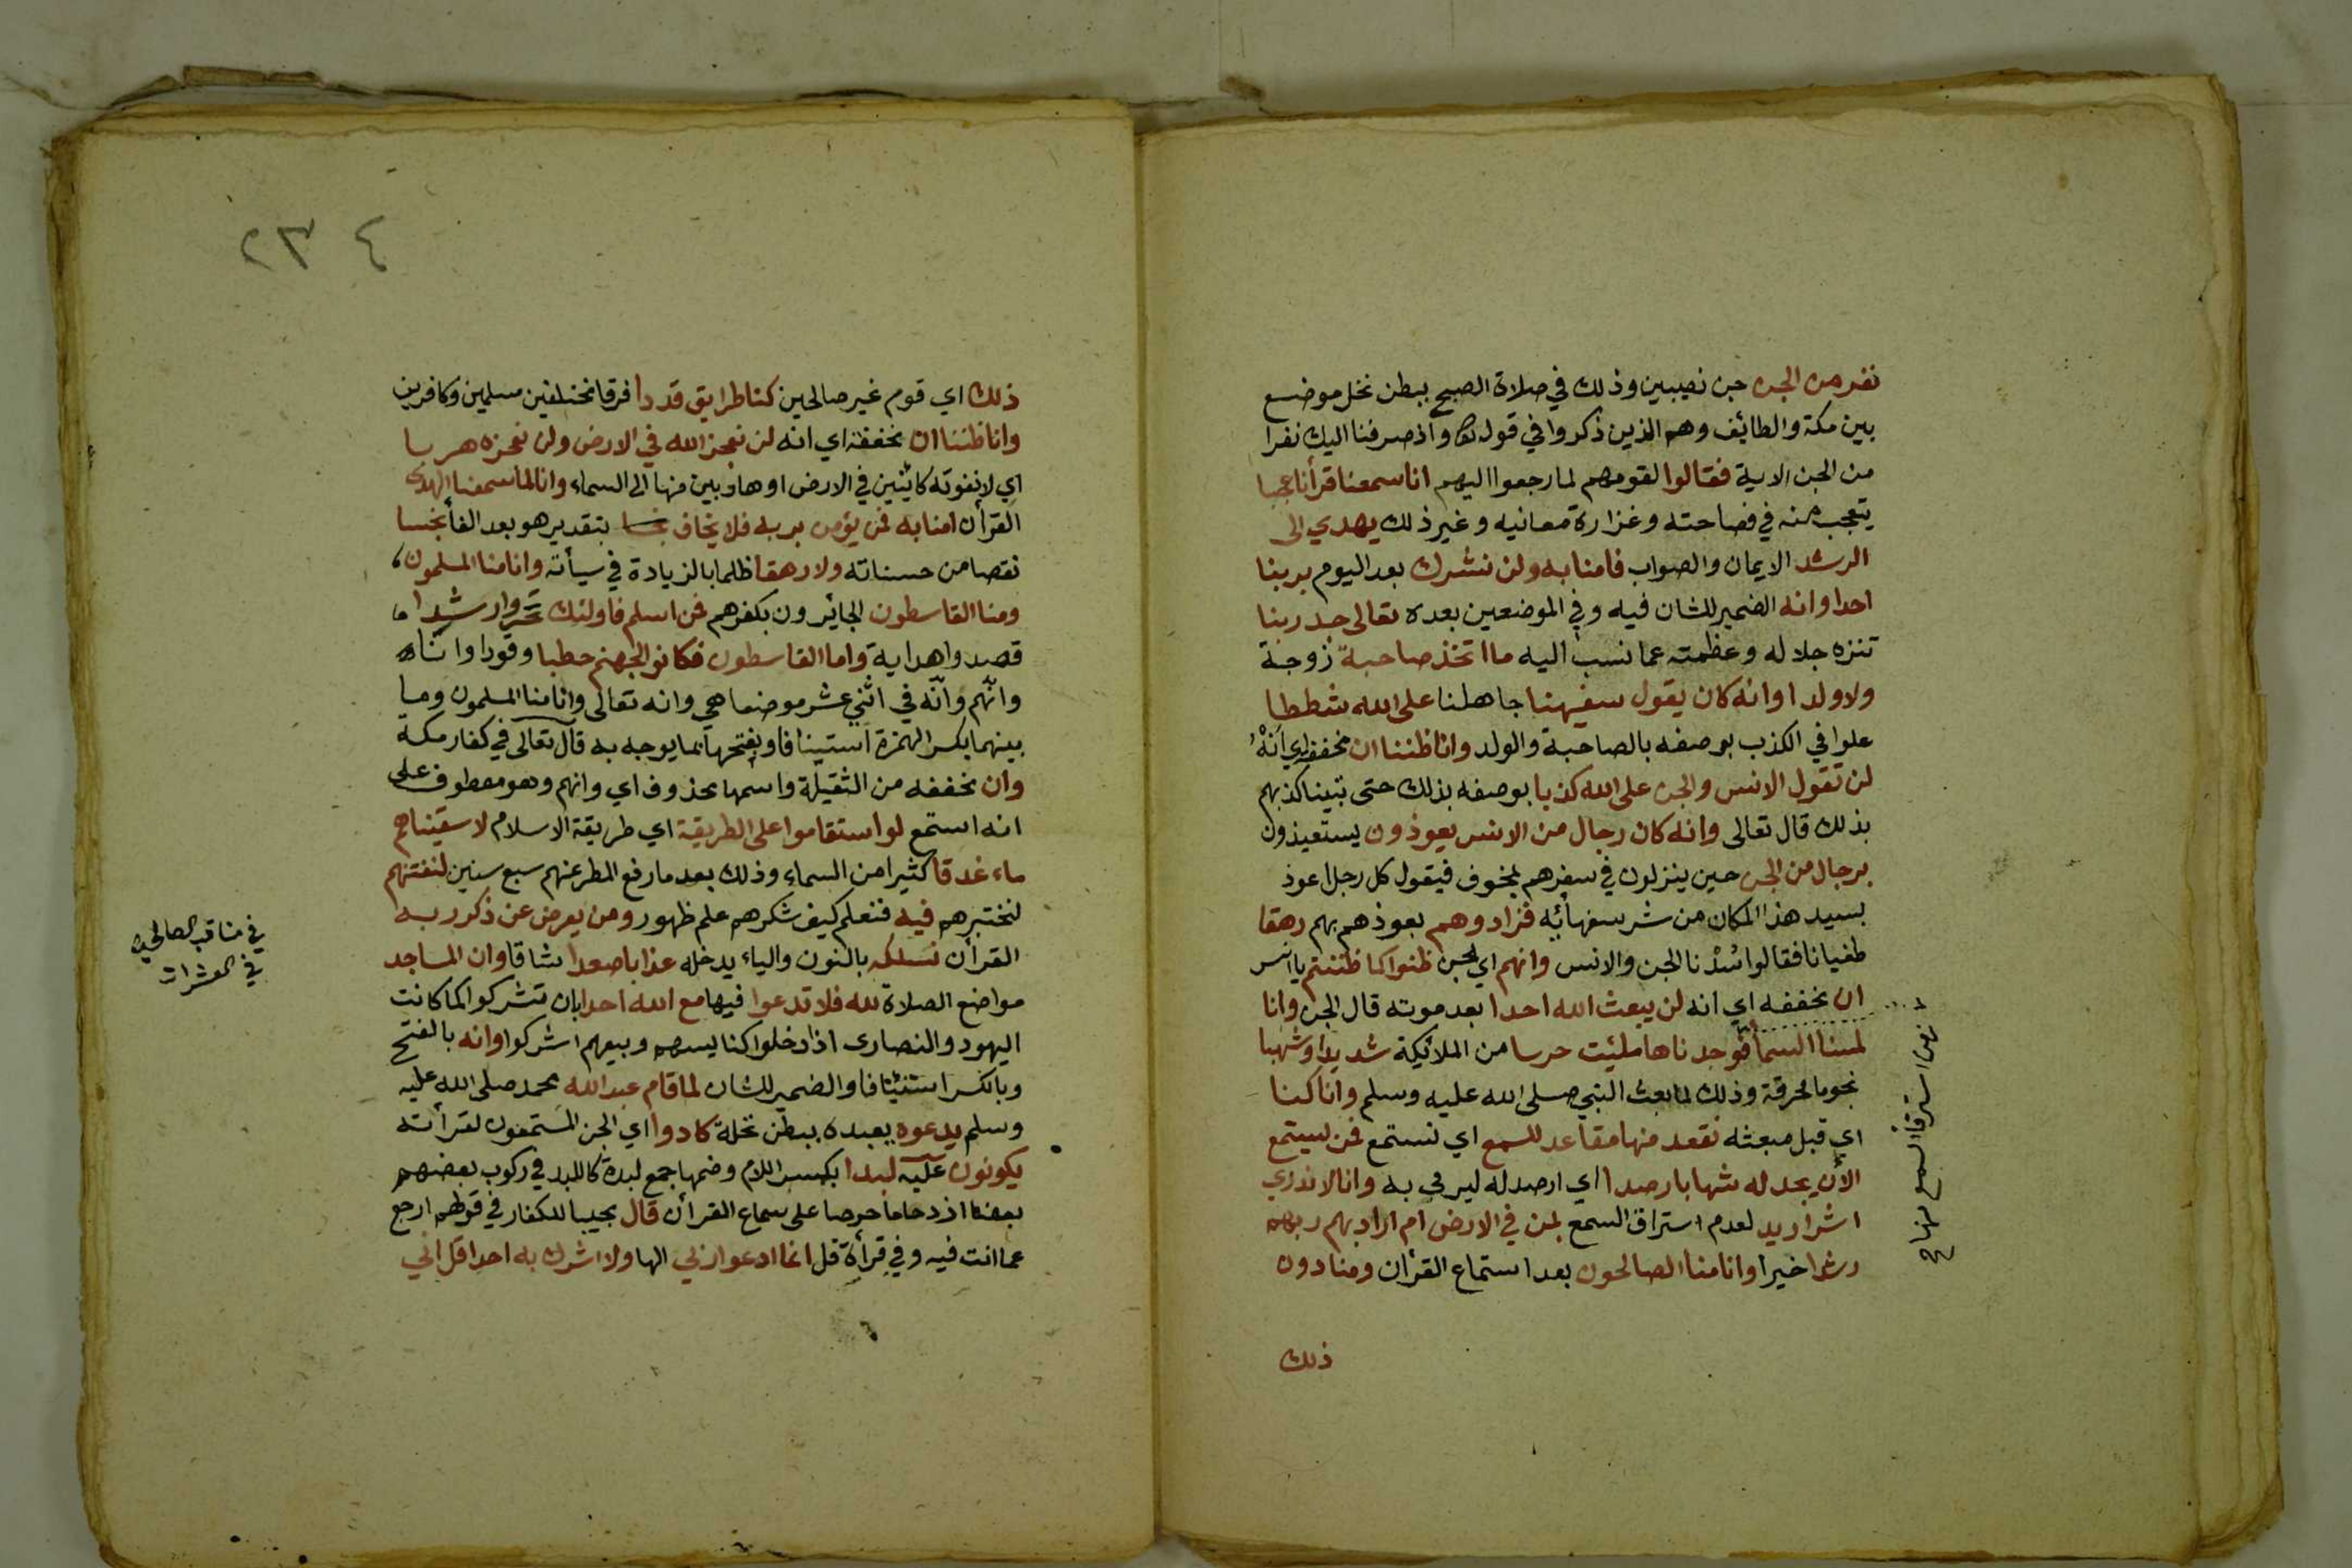 نفر من الجن جن نصيبين وذلك في صلاة الصبح ببطن نخل موضع
بين مكة والطائف وهم الذين ذكروا في قوله تعالى واذ صرفنا اليك نفرا
من الجن الاية فقالوا لقومهم لما رجعوا اليهم انا سمعنا قرأنا عجبا
يتعجب منه في فصاحته وغزارة معانيه وغير ذلك يهدي الى
الرشد الايمان والصواب فامنا به ولن نشرك بعد اليوم بربنا
احدا وانه الضمير للشان فيه وفي الموضعين بعده تعالى جد ربنا
تنزه جلاله وعظمته عما نسب اليه ما اتخذ صاحبة زوجة
ولا ولدا وانه كان يقول سفيهنا جاهلنا على الله شططا
علوا في الكذب بوصفه بالصاحبة والولد وانا ظننا ان مخففة اي انه
لن تقول الانس والجن على الله كذبا بوصفه بذلك حتى تبينا كذبهم
بذلك قال تعالى وانه كان رجال من الانس يعوذون يستعيذون
برجال من الجن حين ينزلون في سفرهم بمخوف فيقول كل رجل اعوذ
بسيد هذا المكان من شر سفهائه فزادوهم بعوذهم بهم رهقا
طغيانا فقالوا سُدْنا الجن والانس وانهم اي الجن ظنوا كما ظننتم يا انس
ان مخففه اي انه لن يبعث الله احدا بعد موته قال الجن وانا
لمسنا السمأ فوجدناها ملئت حرسا من الملائيكة شديدا وشهبا
نجوما محرقة وذلك لما بعث النبي صلى الله عليه وسلم وانا كنا
اي قبل مبعثه نقعد منها مقاعد للسمع اي نستمع فمن يستمع
الأن يجد له شهابا رصدا اي ارصد له ليرمى به وانا لا ندري
اشر اريد لعدم استراق السمع بمن في الارض ام اراد بهم ربهم
رشدا خيرا وانا منا الصالحون بعد استماع القرأن ومنا دون
ذلك
استراق السمع
٢٣٤
ذلك اي قوم غير صالحين كنا طرايق قددا فرقا مختلفين مسلمين وكافرين
وانا ظننا ان مخففة اي انه لن نعجز الله في الارض ولن نعجزه هربا
اي لا نفوته كائنين في الارض او هاربين منها الى السماء وانا لما سمعنا الهدى
القرأن امنا به فمن يؤمن بربه فلا يخاف بتقدير هو بعد الفأ بخسا
نقصا من حسناته ولا رهقا ظلما بالزيادة في سيأته وانا منا المسلمون
ومنا القاسطون الجائرون بكفرهم فمن اسلم فاولئك تحروا رشدا
قصدوا هداية واما القاسطون فكانوا لجهنم حطبا وقودا وانا
وانهم وانّه في اثني عشر موضعا هي وانه تعالى وانا منا المسلمون وما
بينهما بكسر الهمزة استينافا وبفتحها بما يوجه به قال تعالى في كفار مكة
وان مخففه من الثقيلة واسمها محذوف اي وانهم وهو معطوف على
انه استمع لو استقاموا على الطريقة اي طريقة الاسلام لاسقيناهم
ماء غدقا كثيرا من السماء وذلك بعد ما رفع المطر عنهم سبع سنين لنفتنهم
لنختبرهم فيه فنعلم كيف شكرهم علم ظهور ومن يعرض عن ذكر ربه
القرأن نسلكه بالنون والياء يدخله عذابا صعدا شاقا وان المساجد
مواضع الصلاة لله فلا تدعوا فيها مع الله احدا بان تشركوا كما كانت
اليهود والنصارى اذا دخلوا كنايسهم وبيعهم اشركوا وانه بالفتح
وبالكسر استئنافا والضمير للشان لما قام عبد الله محمد صلى الله عليه
وسلم يدعوه يعبده ببطن نخلة كادوا اي الجن المستمعون لقرأته
يكونون عليه لبدا بكسر اللام وضمها جمع لبدة كاللبد في ركوب بعضهم
بعضا ازدحاما حرصا على سماع القرأن قال مجيبا للكفار في قولهم ارجع
عما انت فيه وفي قرأة قل انما ادعوا ربي الها ولا اشرك به احدا قل اني
في مناقب الصالحين